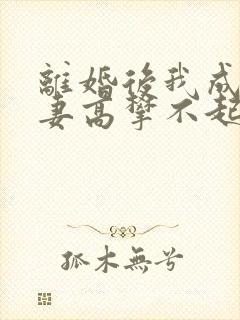 離婚後我成
妻高攀不起
孤木無兮